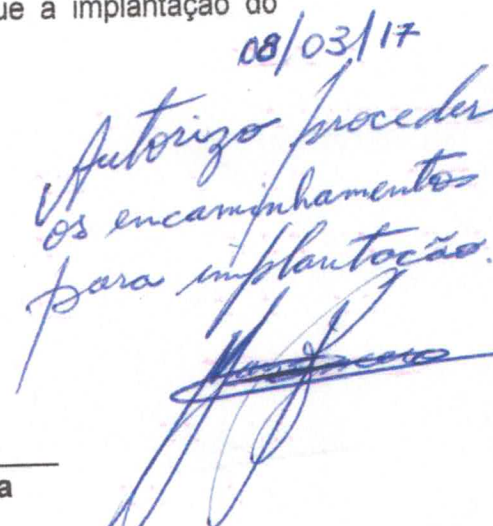 ue a implantação do
08/03/17
Autorizo proceder
os encaminhamentos
para implantação.
a